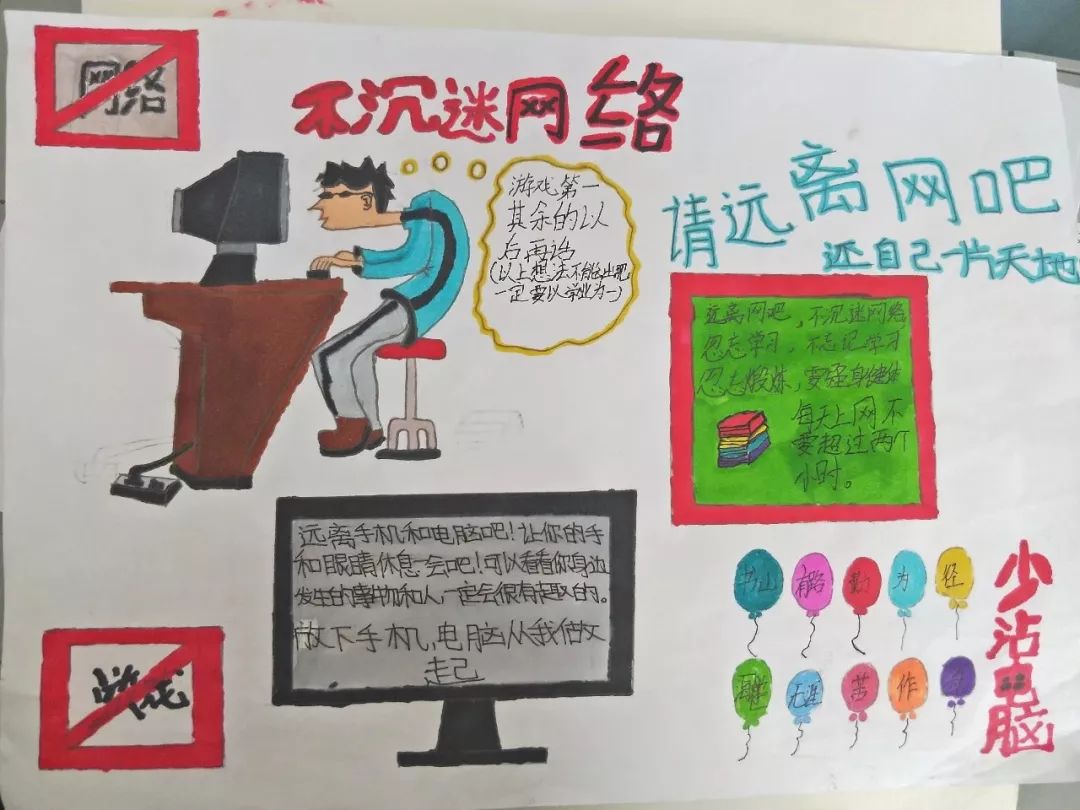 网络
不沉迷网络
游戏第一
其余的以
后再话
(以上想法不能出现
一定要以学业为一)
请远离网吧
还自己一片天地
远离网吧，不沉迷网络
忽忘学习，不忘记学习
忽忘煅炼，要强身健体
每天上网不
要超过两个
小时。
远离手机和电脑吧！让你的手
和眼睛休息一会吧！可以看看你身边
发生的事物和人一定会很有趣的。
放下手机，电脑从我做
走己
游戏
书山 有路 勤 为 径
学海 无涯 苦 作 舟
少沾电脑